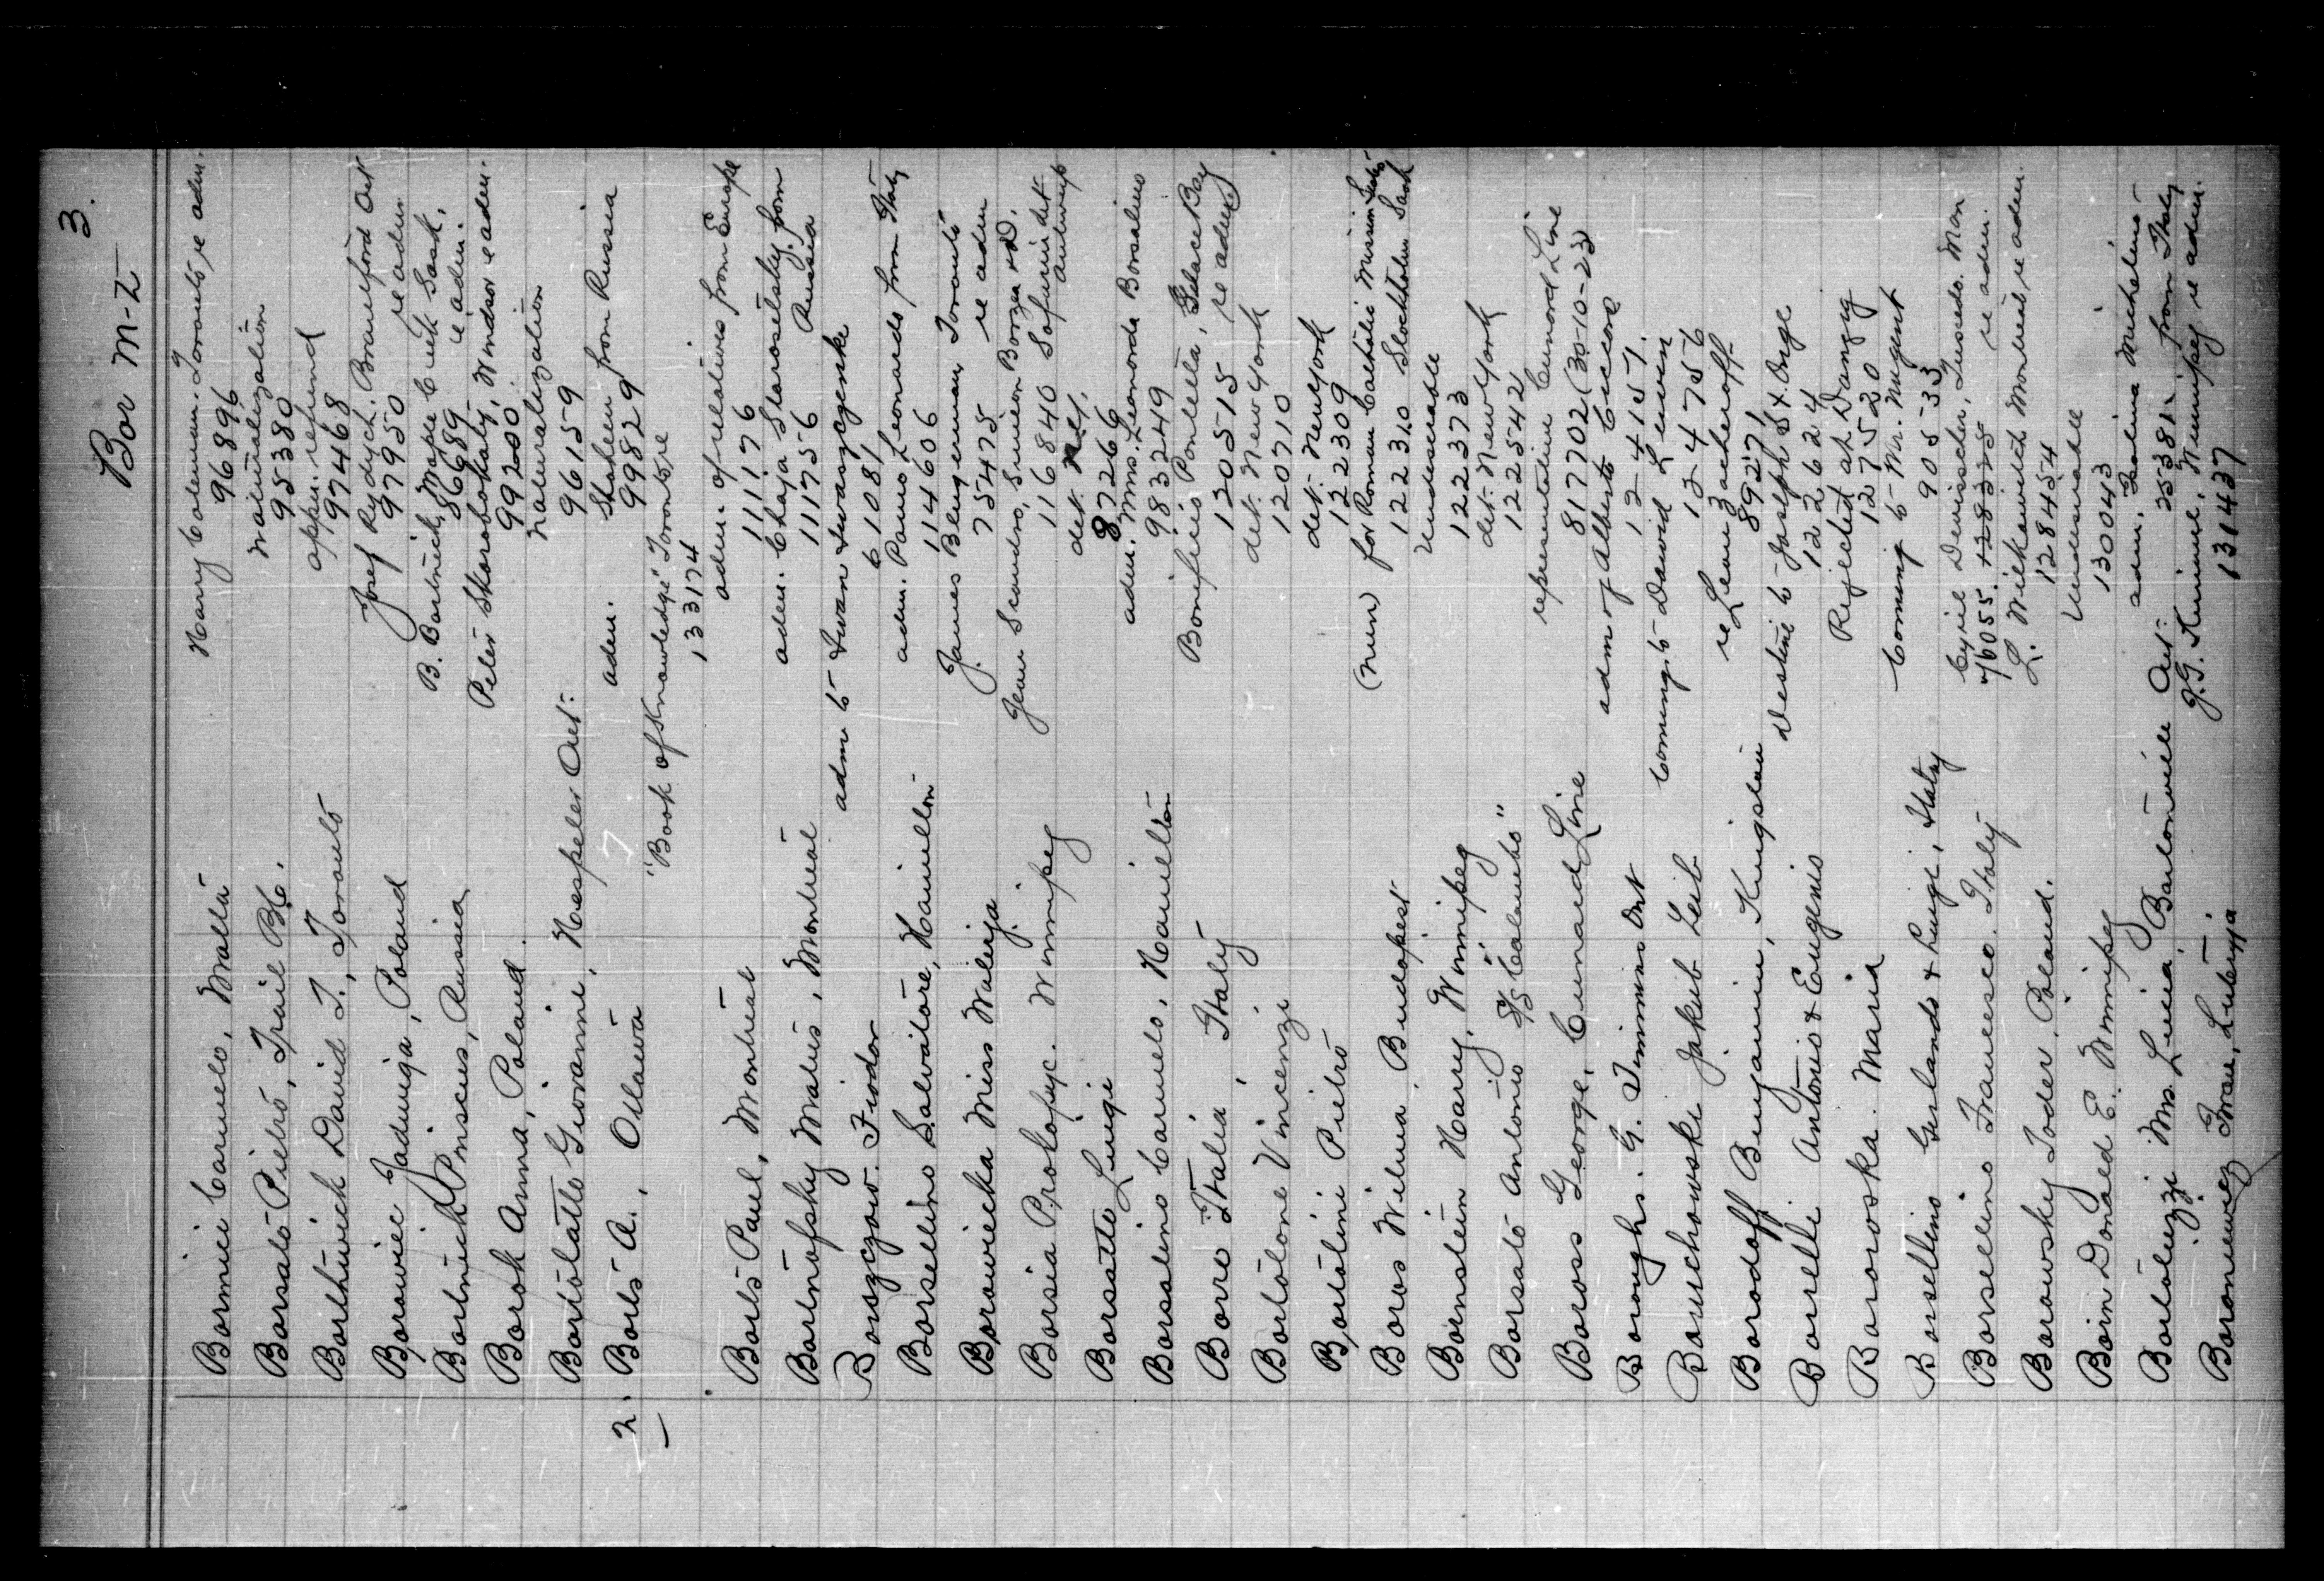 3.
Bor M-Z
Bormici Carmelo, Malta Harry Coleman. Toronto, re adm.
96896
Borsato Pietro, Trail B.C. naturalization
95380
Borthwick David T., Toronto appn. refund
97468
Borowiec Jadwiga, Poland Josef Rydych. Brantford Ont
97950 re adm
Bortnick Priscus, Russia B. Bortnick, Maple Creek Sask.
86689 re adm.
Borok Anna, Poland. Peter Skorobokaty, Windsor re adm.
99200
Bortolatto Giovanni, Hespeler Ont: naturalization
96159
2. Borts A., Ottawa adm. from Russia
99829
"Book of Knowledge" Toronto, re
133174
Borts Paul, Montreal adm. of relatives from Europe
111176
Bortnofsky Matus, Montreal adm. Chaja Starosetsky from
111756 Russia
Borszczow. Fiodor adm to Iwan Iwaszczenko
61081
Borsellino Salvatore, Hamilton adm. Leonardo from Italy
114606
Borowiecka Miss Walerja James Blugerman, Toronto
75475 re adm
Borsia Prokofyc. Winnipeg
116840 antwerp
Borsatto Luigi det.
87266
Borsalino Carmelo, Hamilton adm. Mrs. Leonarda Borsalino
983249
Borre Italia, Italy Bonifacio Pontella, Glace Bay
120515 re adm
Bortolone Vincenzi det. New York
120710
Bortolini Pietro det. New York
122309
Boros Wilma, Budapest (nun) for Roman Catholic Mission
122310 Stockholm Sask
Bornstein Harry, Winnipeg Undesirable
122373
Borsato Antonio S/S "Colombo" det. New York
122542
Boross George, Cunard Line representative Cunard Line
817702 (30-10-23)
Boroughs. G. Timmins Ont adm of Alberto Ciccone
124157.
Boruchowski Jakub Leib coming to David Lewin
124756
Borodoff Benjamin, Kingston re Leon Zacheroff
89271
Borrelli Antonio & Eugenio Destine to Joseph St. Onge
122624
Bororoska. Maria Rejected at Danzig
127520
Borsellino Gerlando & Luigi, Italy Coming to Mr. Nugent
90533
Borsellino Francesco. Italy Cyril Demischer, Tuxedo. Man
76055. 128325 re adm.
Borowsky Joder, Poland. L. Wilkowitch Montreal, re adm.
128454
Borin Donald E. Winnipeg Undesirable
130043
Bortoluzzi Mrs. Lucia, Ont: adm. Michelino
25381 from Italy
Boroniewicz J.G. Kimmel, Winnipeg re adm.
131437